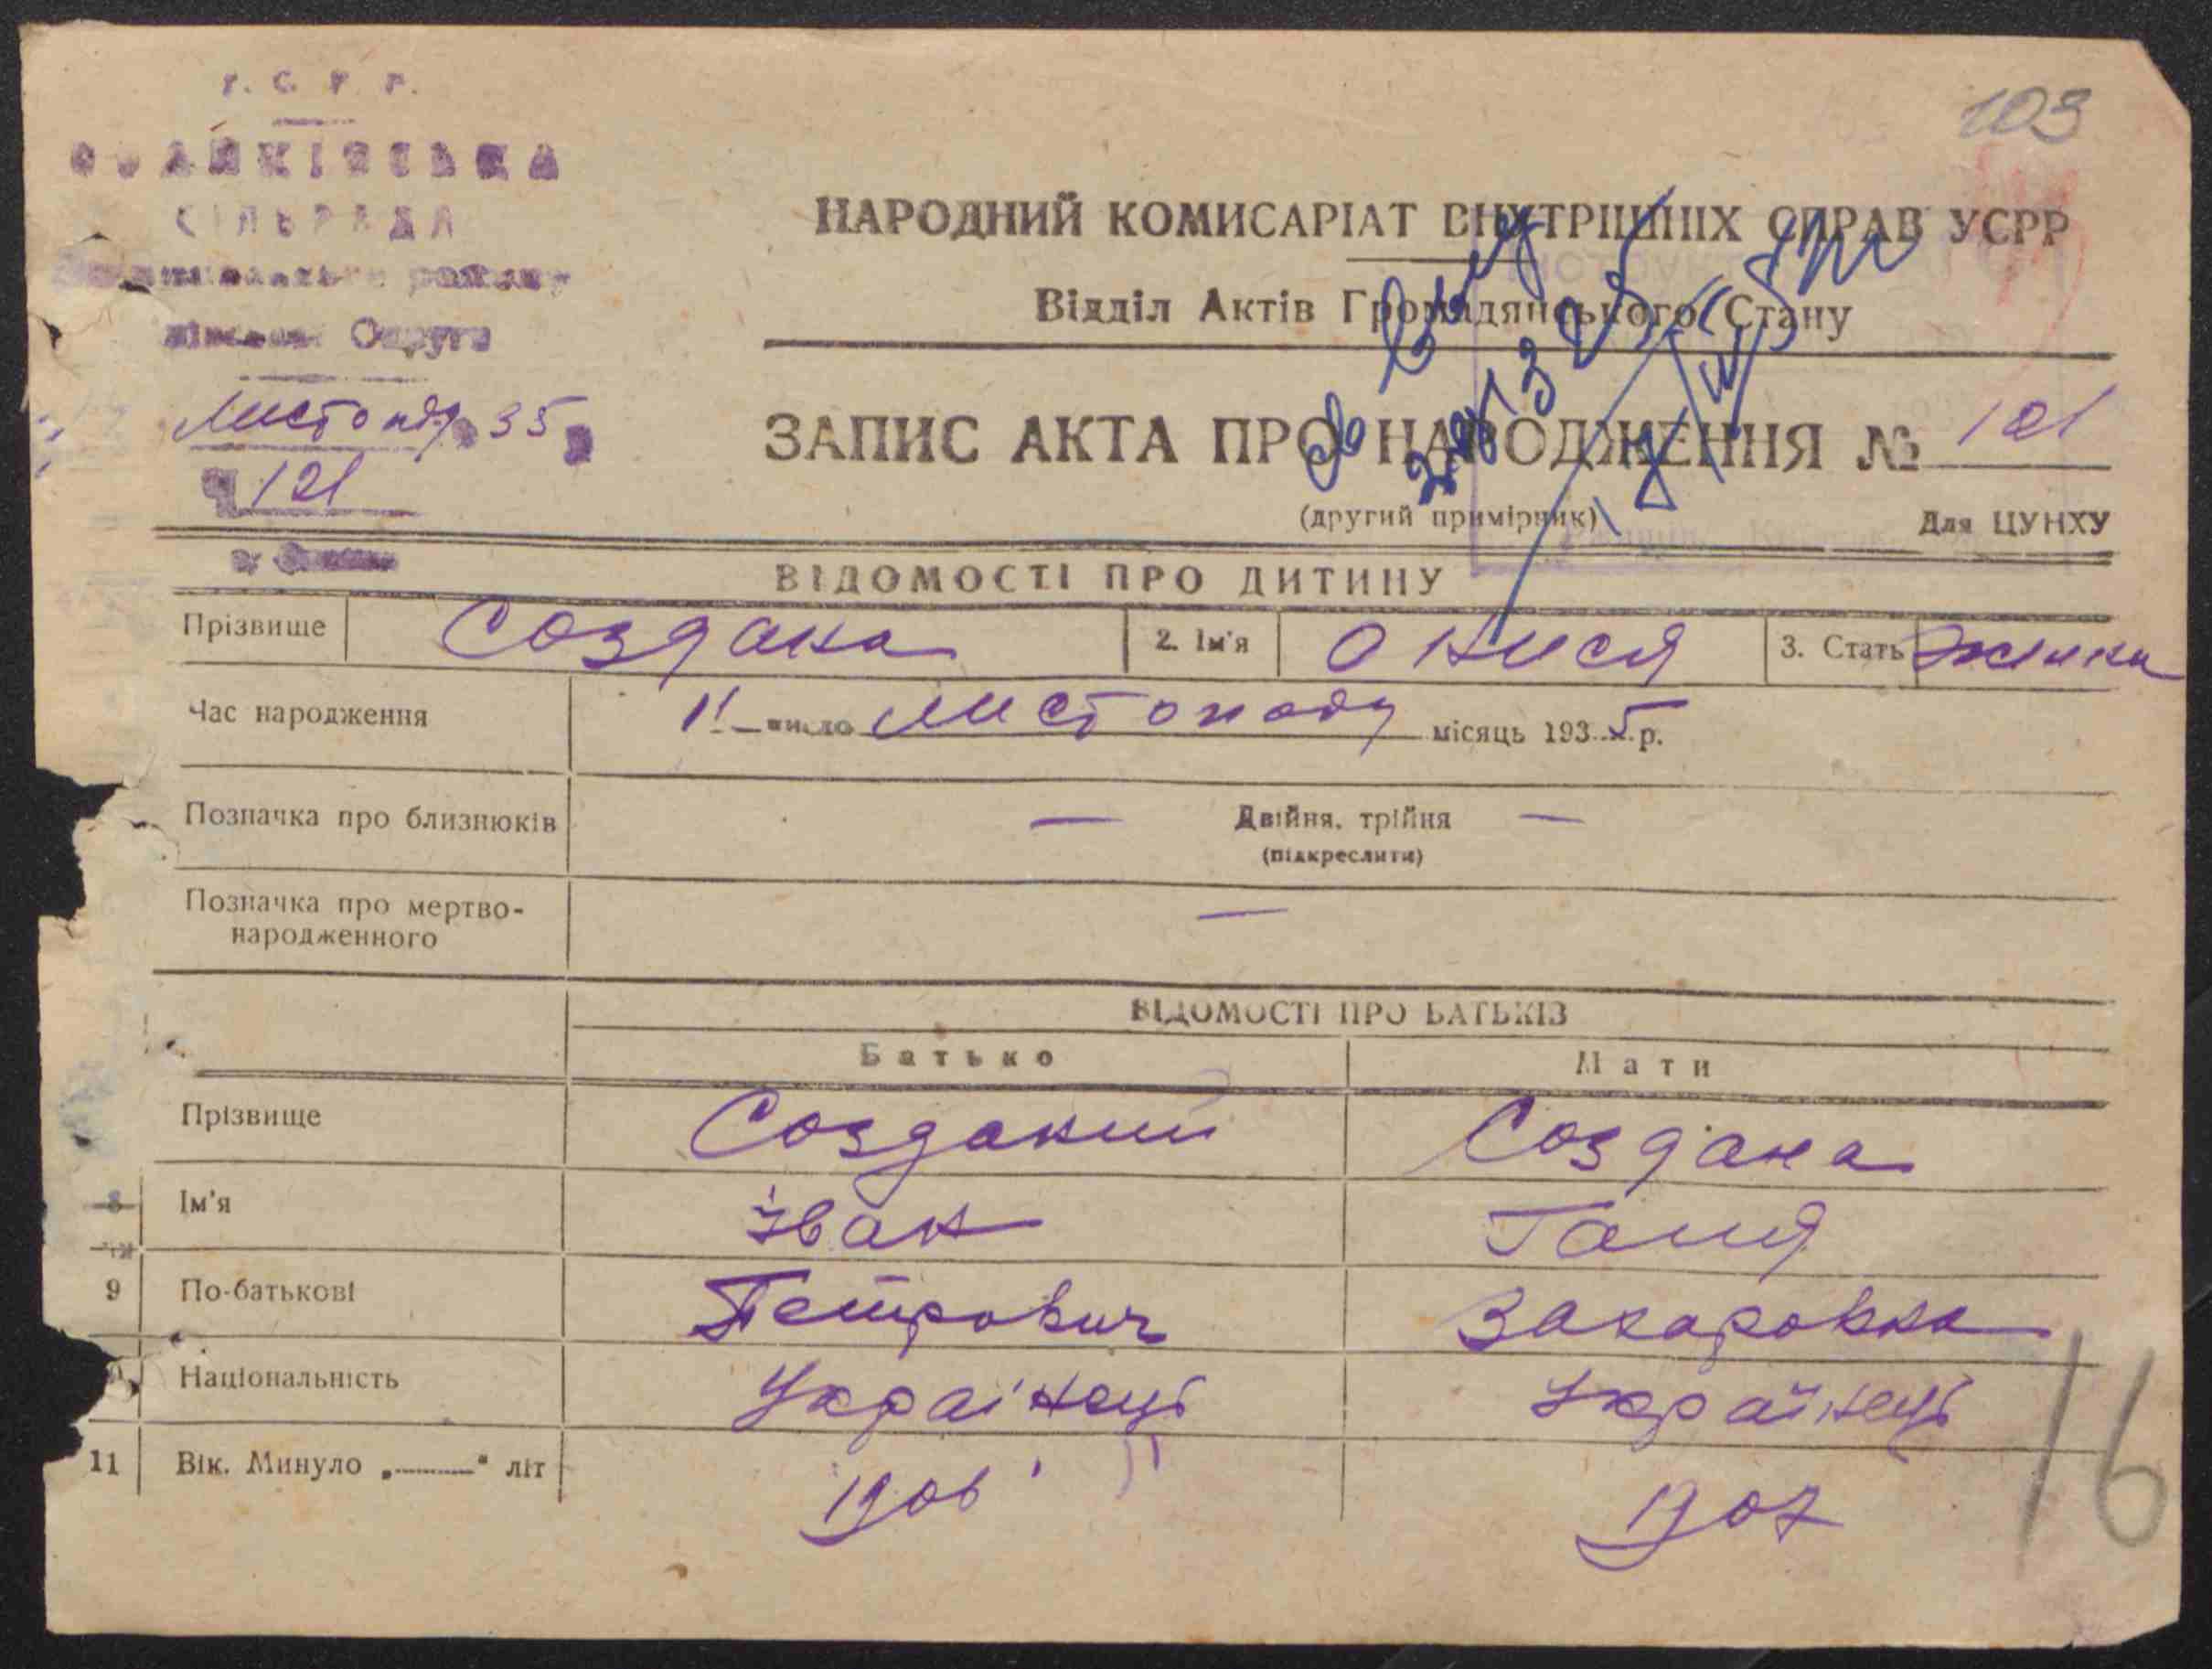 103
СІЛЬРАДА
району
Округи
Листопад 35
Ч 121
НАРОДНИЙ КОМИСАРІАТ ВНУТРІШНІХ СПРАВ УСРР
Відділ Актів Громадянського Стану
ЗАПИС АКТА ПРО НАРОДЖЕННЯ № 121
(другий примірник)
Для ЦУНХУ
ВІДОМОСТІ ПРО ДИТИНУ
Прізвище Создана 2. Ім'я Онися 3. Стать
Час народження 11 число листопаду місяць 1935 р.
Позначка про близнюків — Двійня, трійня —
(підкреслити)
Позначка про мертво-
народженного —
ВІДОМОСТІ ПРО БАТЬКІВ
Батько Мати
Прізвище Созданий Создана
8 Ім'я Іван Ганя
9 По-батькові Петрович Захаровна
Національність Українець Українець
11 Вік. Минуло „ “ літ 1906 1907
16